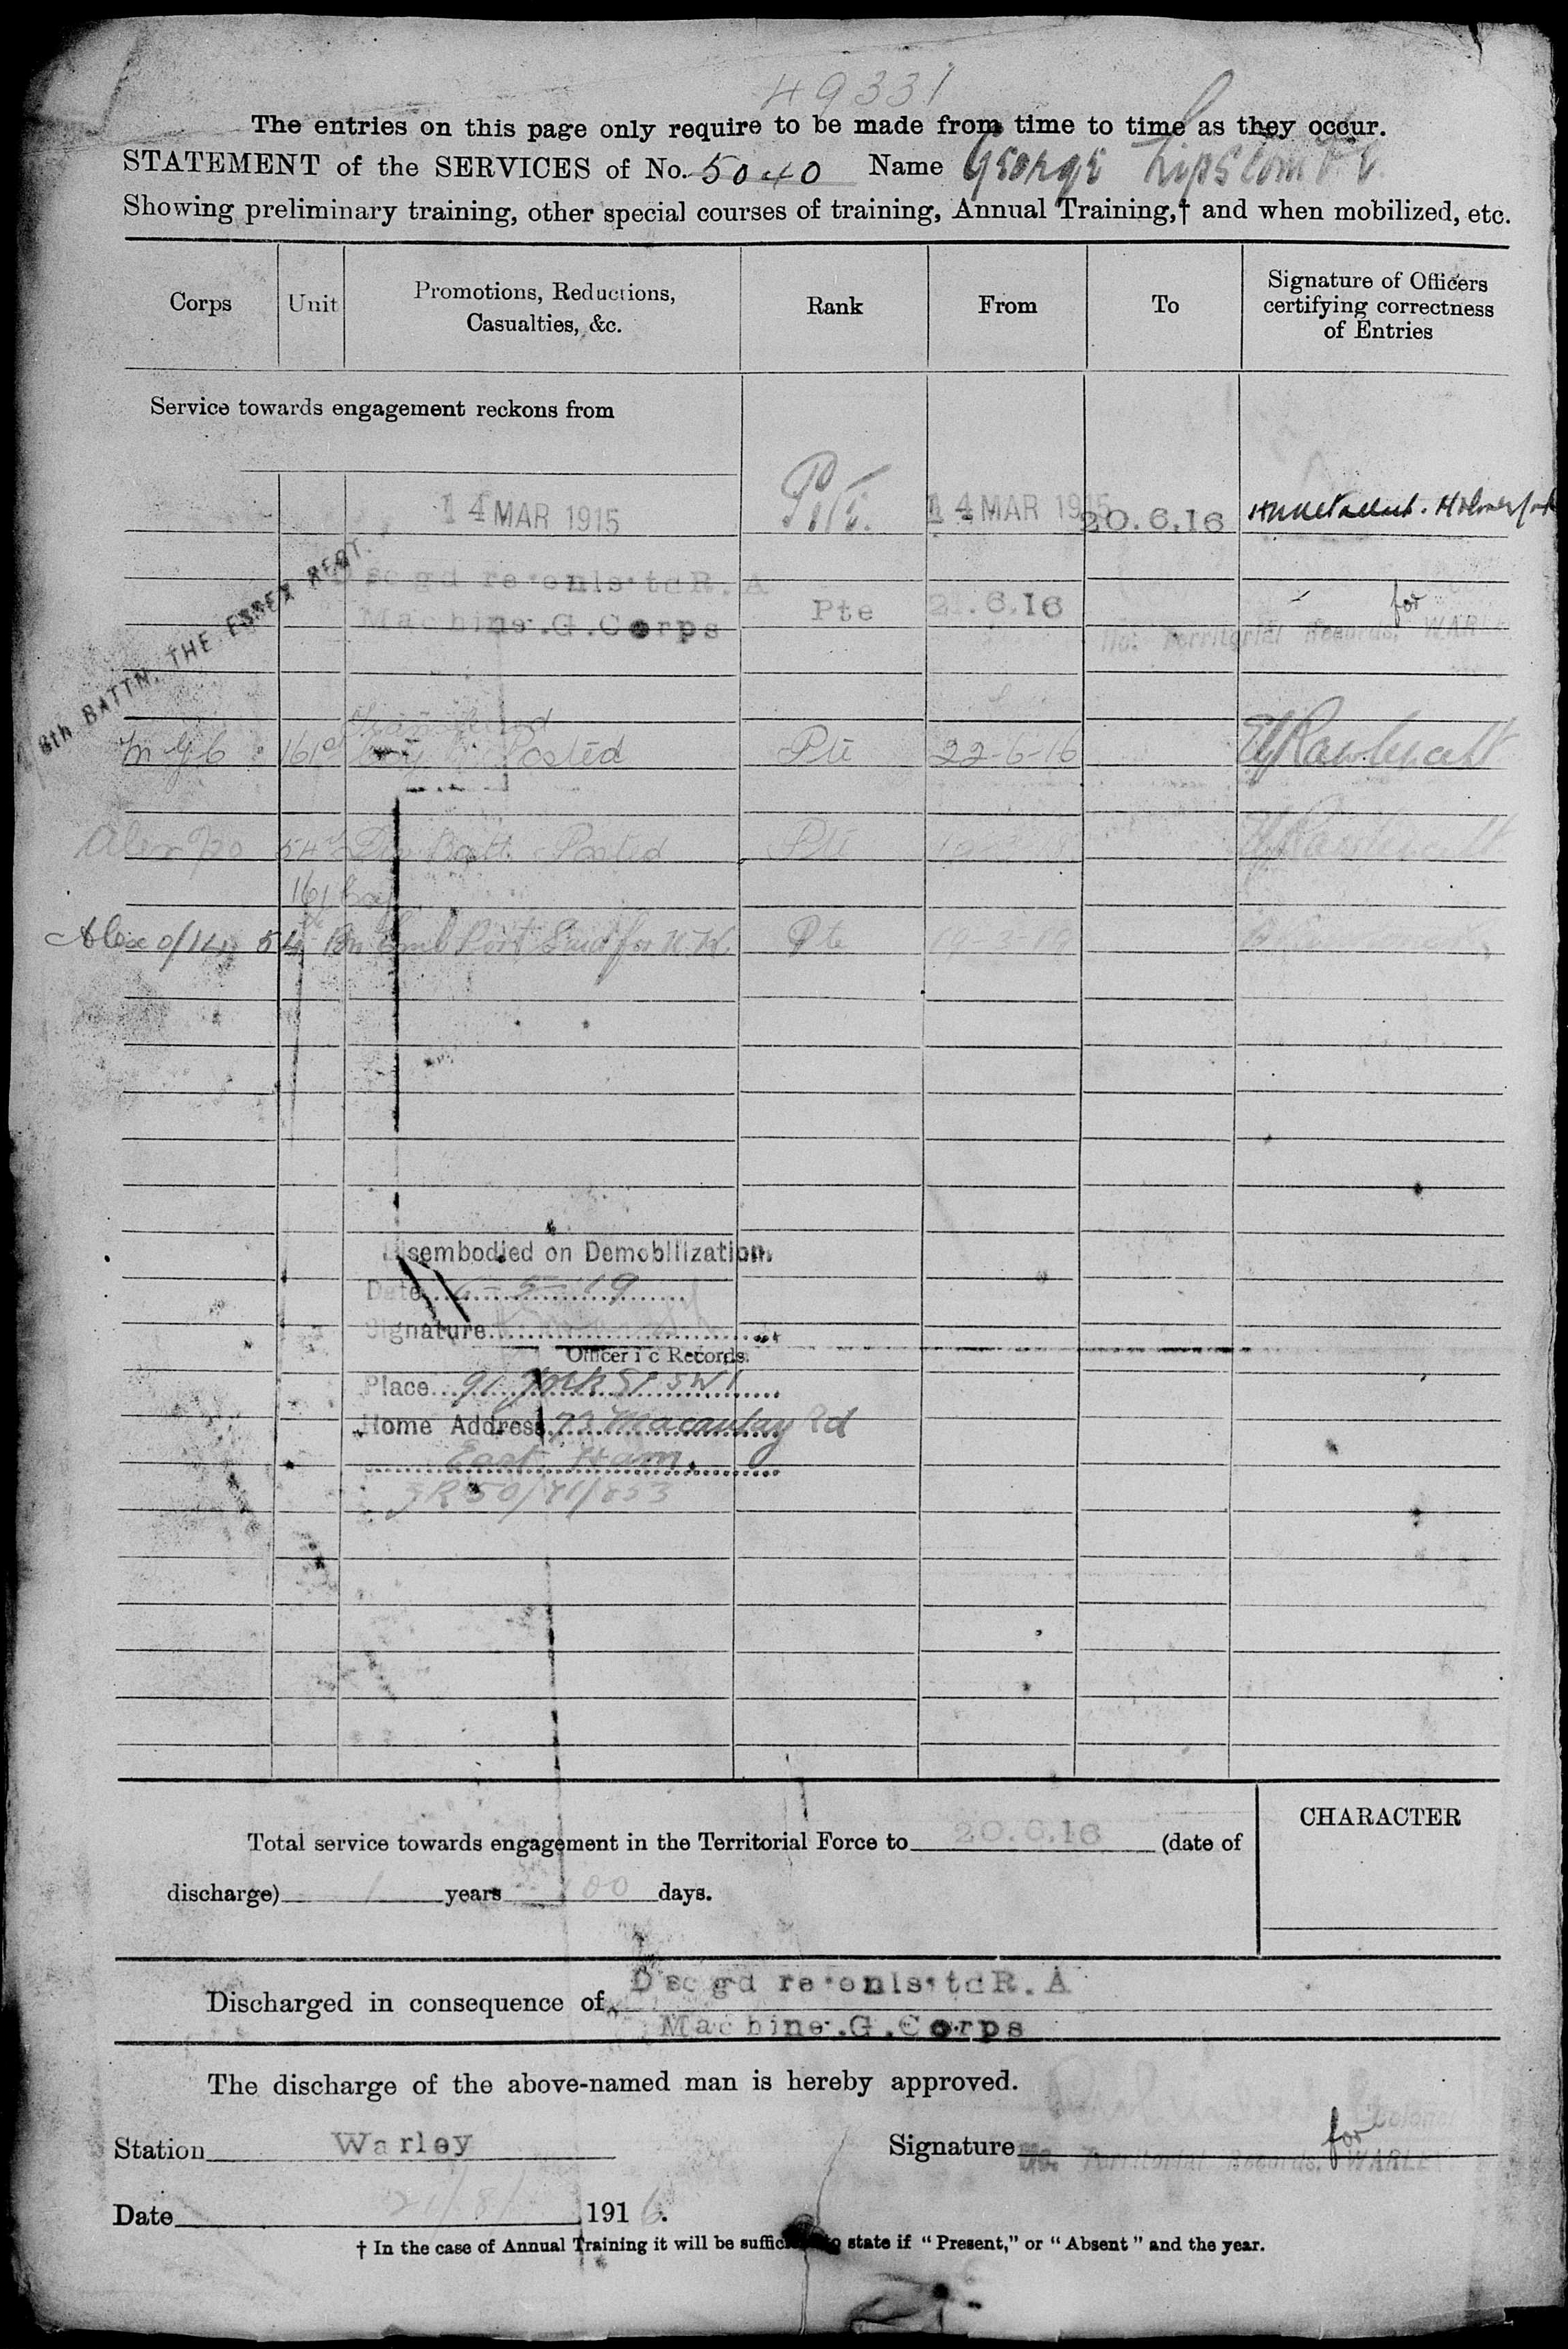 49331
The entries on this page only require to be made from time to time as they occur.
STATEMENT of the SERVICES of No. 5040 Name George Lipscombe
Showing preliminary training, other special courses of training, Annual Training,† and when mobilized, etc.
Corps Unit Promotions, Reductions, Casualties, &c. Rank From To Signature of Officers certifying correctness of Entries
Service towards engagement reckons from
14 MAR 1915 Pte. 14 MAR 1915 20.6.16
8th BATTN. THE ESSEX REGT.
Machine.G.Corps Pte .6.16 for
Territorial Records, WARLE
Transferred
M G C 161st Coy Posted Pte 22-6-16
54th Batt. Posted Pte
161 Coy
Alex 54 Bn Emb Port Said for U.K. Pte
sembodied on Demobilization.
Date 5-19
Signature
Officer i c Records.
Place 91 York St SW1
Home Address 73 Macaulay Rd
East Ham.
Total service towards engagement in the Territorial Force to 20.6.16 (date of
discharge) 1 years 100 days.
CHARACTER
Discharged in consequence of D sc gd re onls td R.A
Machine.G.Corps
The discharge of the above-named man is hereby approved.
Station Warley Signature for Colonel
Territorial Records, WARLE
Date 21/8/ 1916.
† In the case of Annual Training it will be suffic to state if “Present,” or “Absent” and the year.